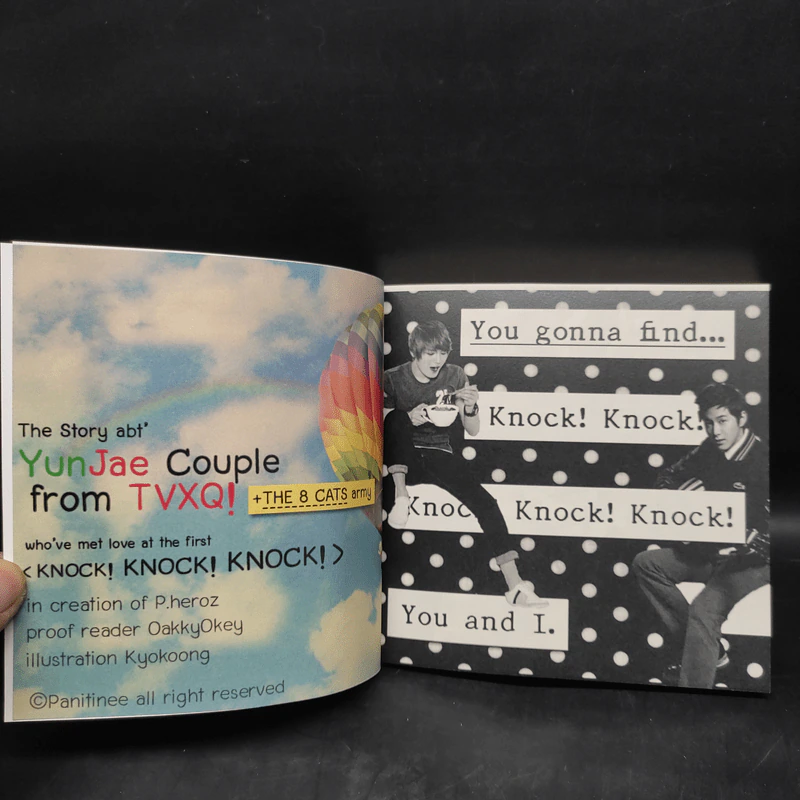 The Story abt'
YunJae Couple
from TVXQ! +THE 8 CATS army
who've met love at the first
<KNOCK! KNOCK! KNOCK!>
in creation of P.heroz
proof reader OakkyOkey
illustration Kyokoong
©Panitinee all right reserved
You gonna find...
Knock! Knock!
Knoc Knock! Knock!
You and I.